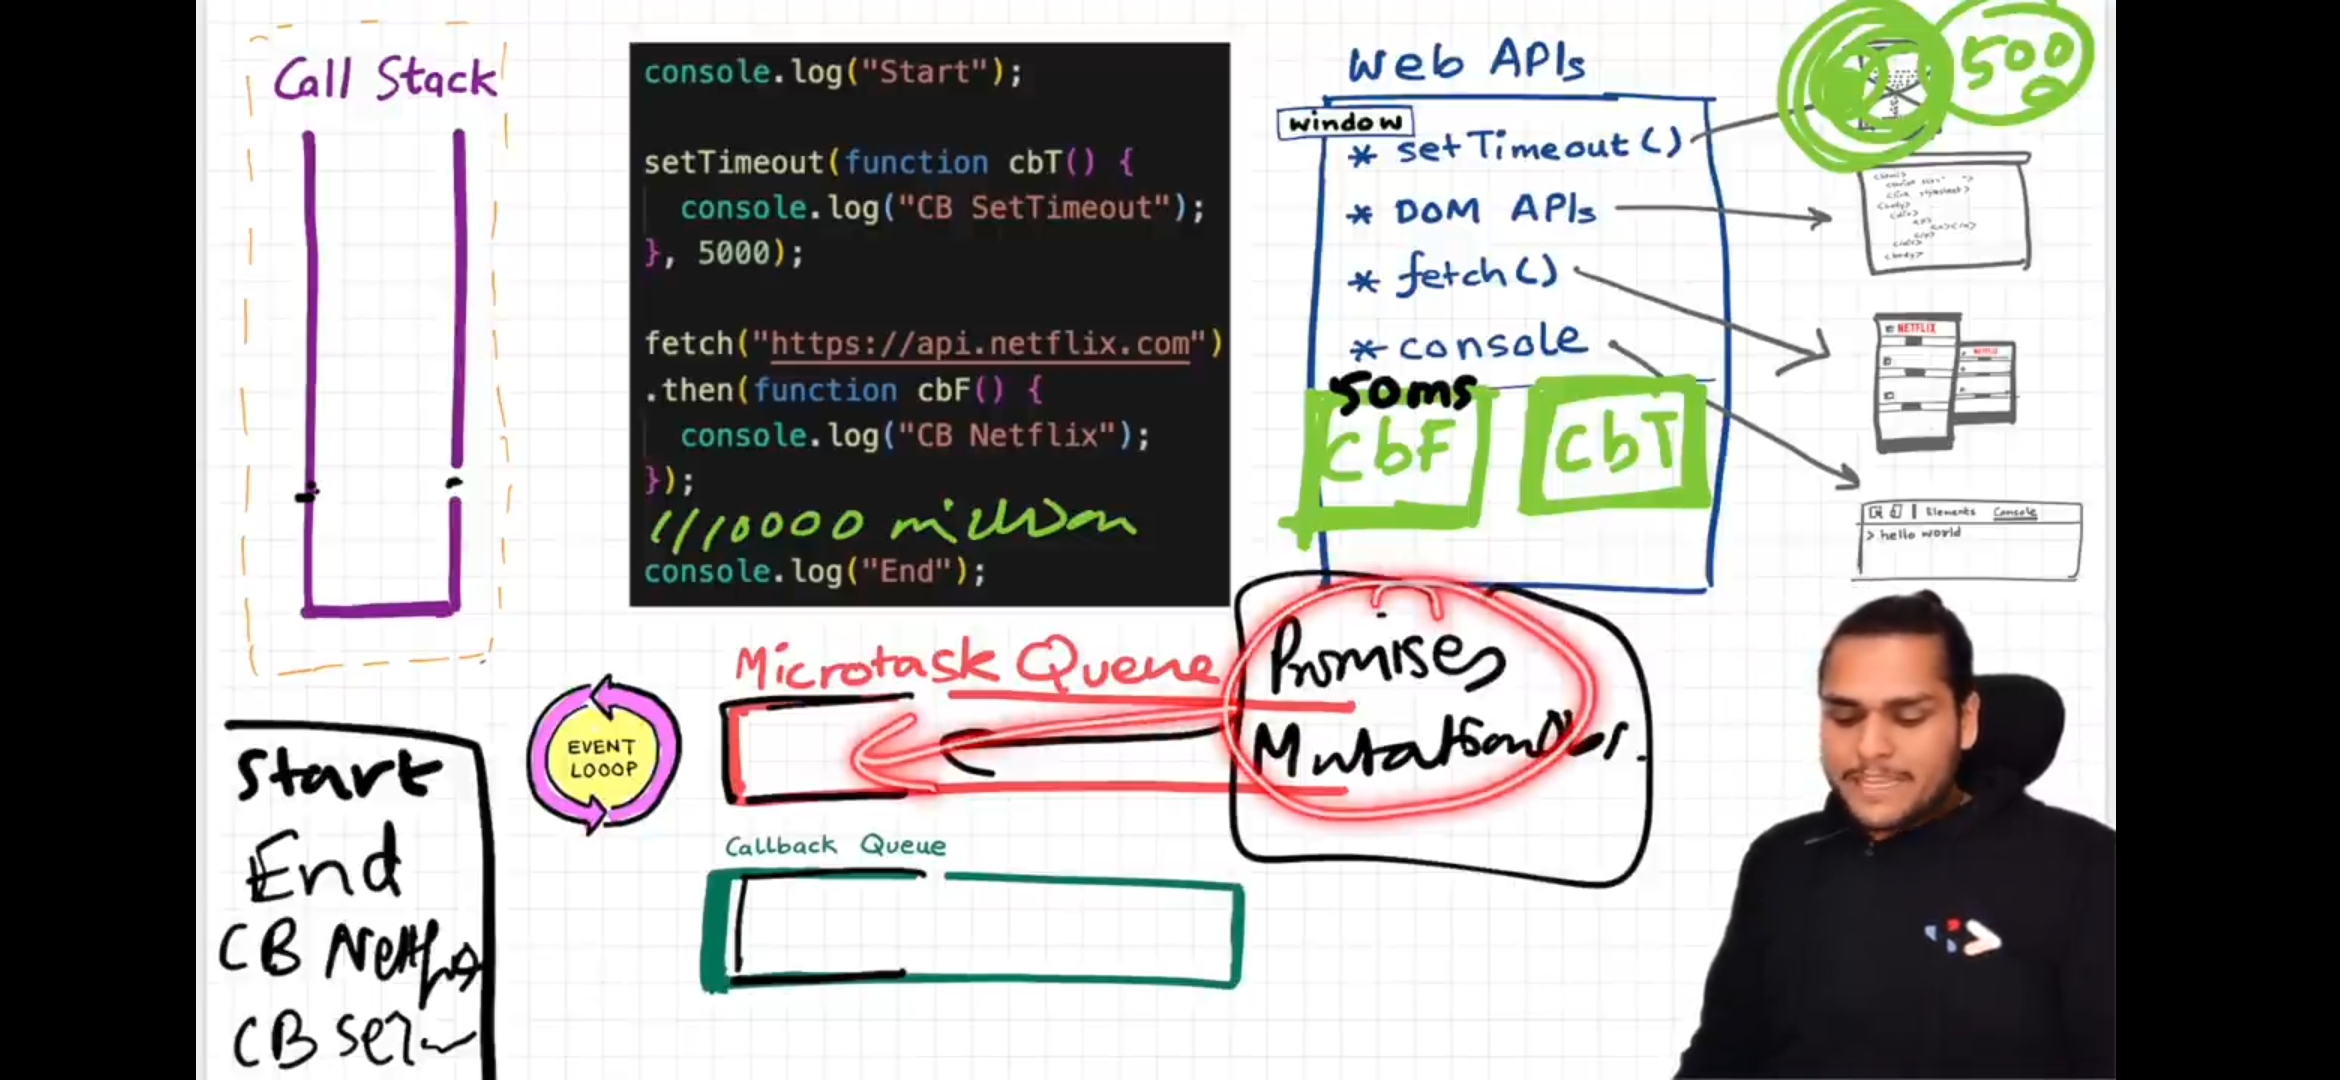 Call Stack
console.log("Start");
setTimeout(function cbT() {
console.log("CB SetTimeout");
}, 5000);
fetch("https://api.netflix.com")
.then(function cbF() {
console.log("CB Netflix");
});
//10000 million
console.log("End");
Web APIs
window
* setTimeout()
* DOM APIs
* fetch()
* console
50ms
CbF
CbT
500
NETFLIX
NETFLIX
Elements Console
> hello world
Microtask Queue
Promises
EVENT
LOOOP
Callback Queue
Start
End
CB
CB